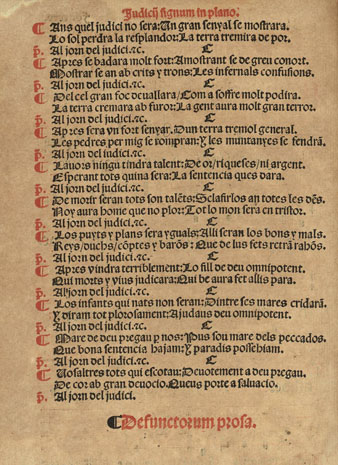 Judicij signum in plano.
Ans quel judici no sera: Un gran senyal se mostrara.
Lo sol perdra la resplandor: La terra tremira de por.
p. Al jorn del judici. ⁊c.
Apres se badara molt fort: Amostrant se de greu conort.
Mostrar se an ab crits y trons: Les infernals confusions.
p. Al jorn del judici. ⁊c.
Del cel gran foc deuallara / Com a soffre molt podira.
La terra cremara ab furor: La gent aura molt gran terror.
p. Al jorn del judici. ⁊c.
Apres sera vn fort senyar. Dun terra tremol general.
Les pedres per mig se rompran: Y les muntanyes se fendrã.
p. Al jorn del judici. ⁊c.
Lauors ningu tindra talent: De or / riqueses / ni argent.
Esperant tots quina sera: La sentencia ques dara.
p. Al jorn del judici. ⁊c.
De morir seran tots son talẽts: Sclafirlos an totes les dẽs.
Noy aura home que no plor: Tot lo mon sera en tristor.
p. Al jorn del judici. ⁊c.
Los puyts y plans sera yguals: Alli seran los bons y mals.
Reys / duchs / cõptes y barõs: Que de lus fets retrã rahõs.
p. Al jorn del judici. ⁊c.
Apres vindra terriblement: Lo fill de deu omnipotent.
Qui morts y vius judicara: Qui be aura fet allis para.
p. Al jorn del judici. ⁊c.
Los infants qui nats non seran: Dintre ses mares cridarã.
Y diram tot plorosament: Ajudaus deu omnipotent.
p. Al jorn del judici. ⁊c.
Mare de deu pregau p nos: Pus sou mare dels peccados.
Que bona sentencia hajam: Y paradis possehiam.
p. Al jorn del judici. ⁊c.
Uosaltres tots qui escotau: Deuotement a deu pregau.
De cor ab gran deuocio. Queus porte a saluacio.
p. Al jorn del judici.
Defunctorum prosa.